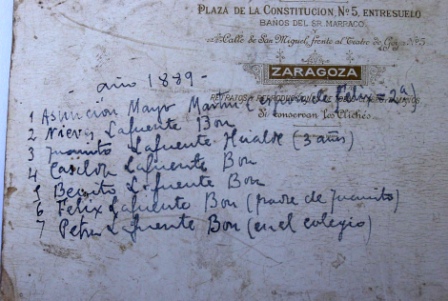 PLAZA DE LA CONSTITUCION, Nº5, ENTRESUELO
BAÑOS DEL SR. MARRACO.
Calle de San Miguel, frente al Teatro de Goya Nº5
ZARAGOZA
Si conservan los Clichés.
año 1889-
1 Asunción Mayo Martin (esposa de Felix = 2ª)
2 Nieves Lafuente Bon
3 Juanito Lafuente Hualde (3 años)
4 Casildn Lafuente Bon
5 Benito Lafuente Bon
6 Felix Lafuente Bon (padre de Juanito)
7 Petra Lafuente Bon (en el colegio)